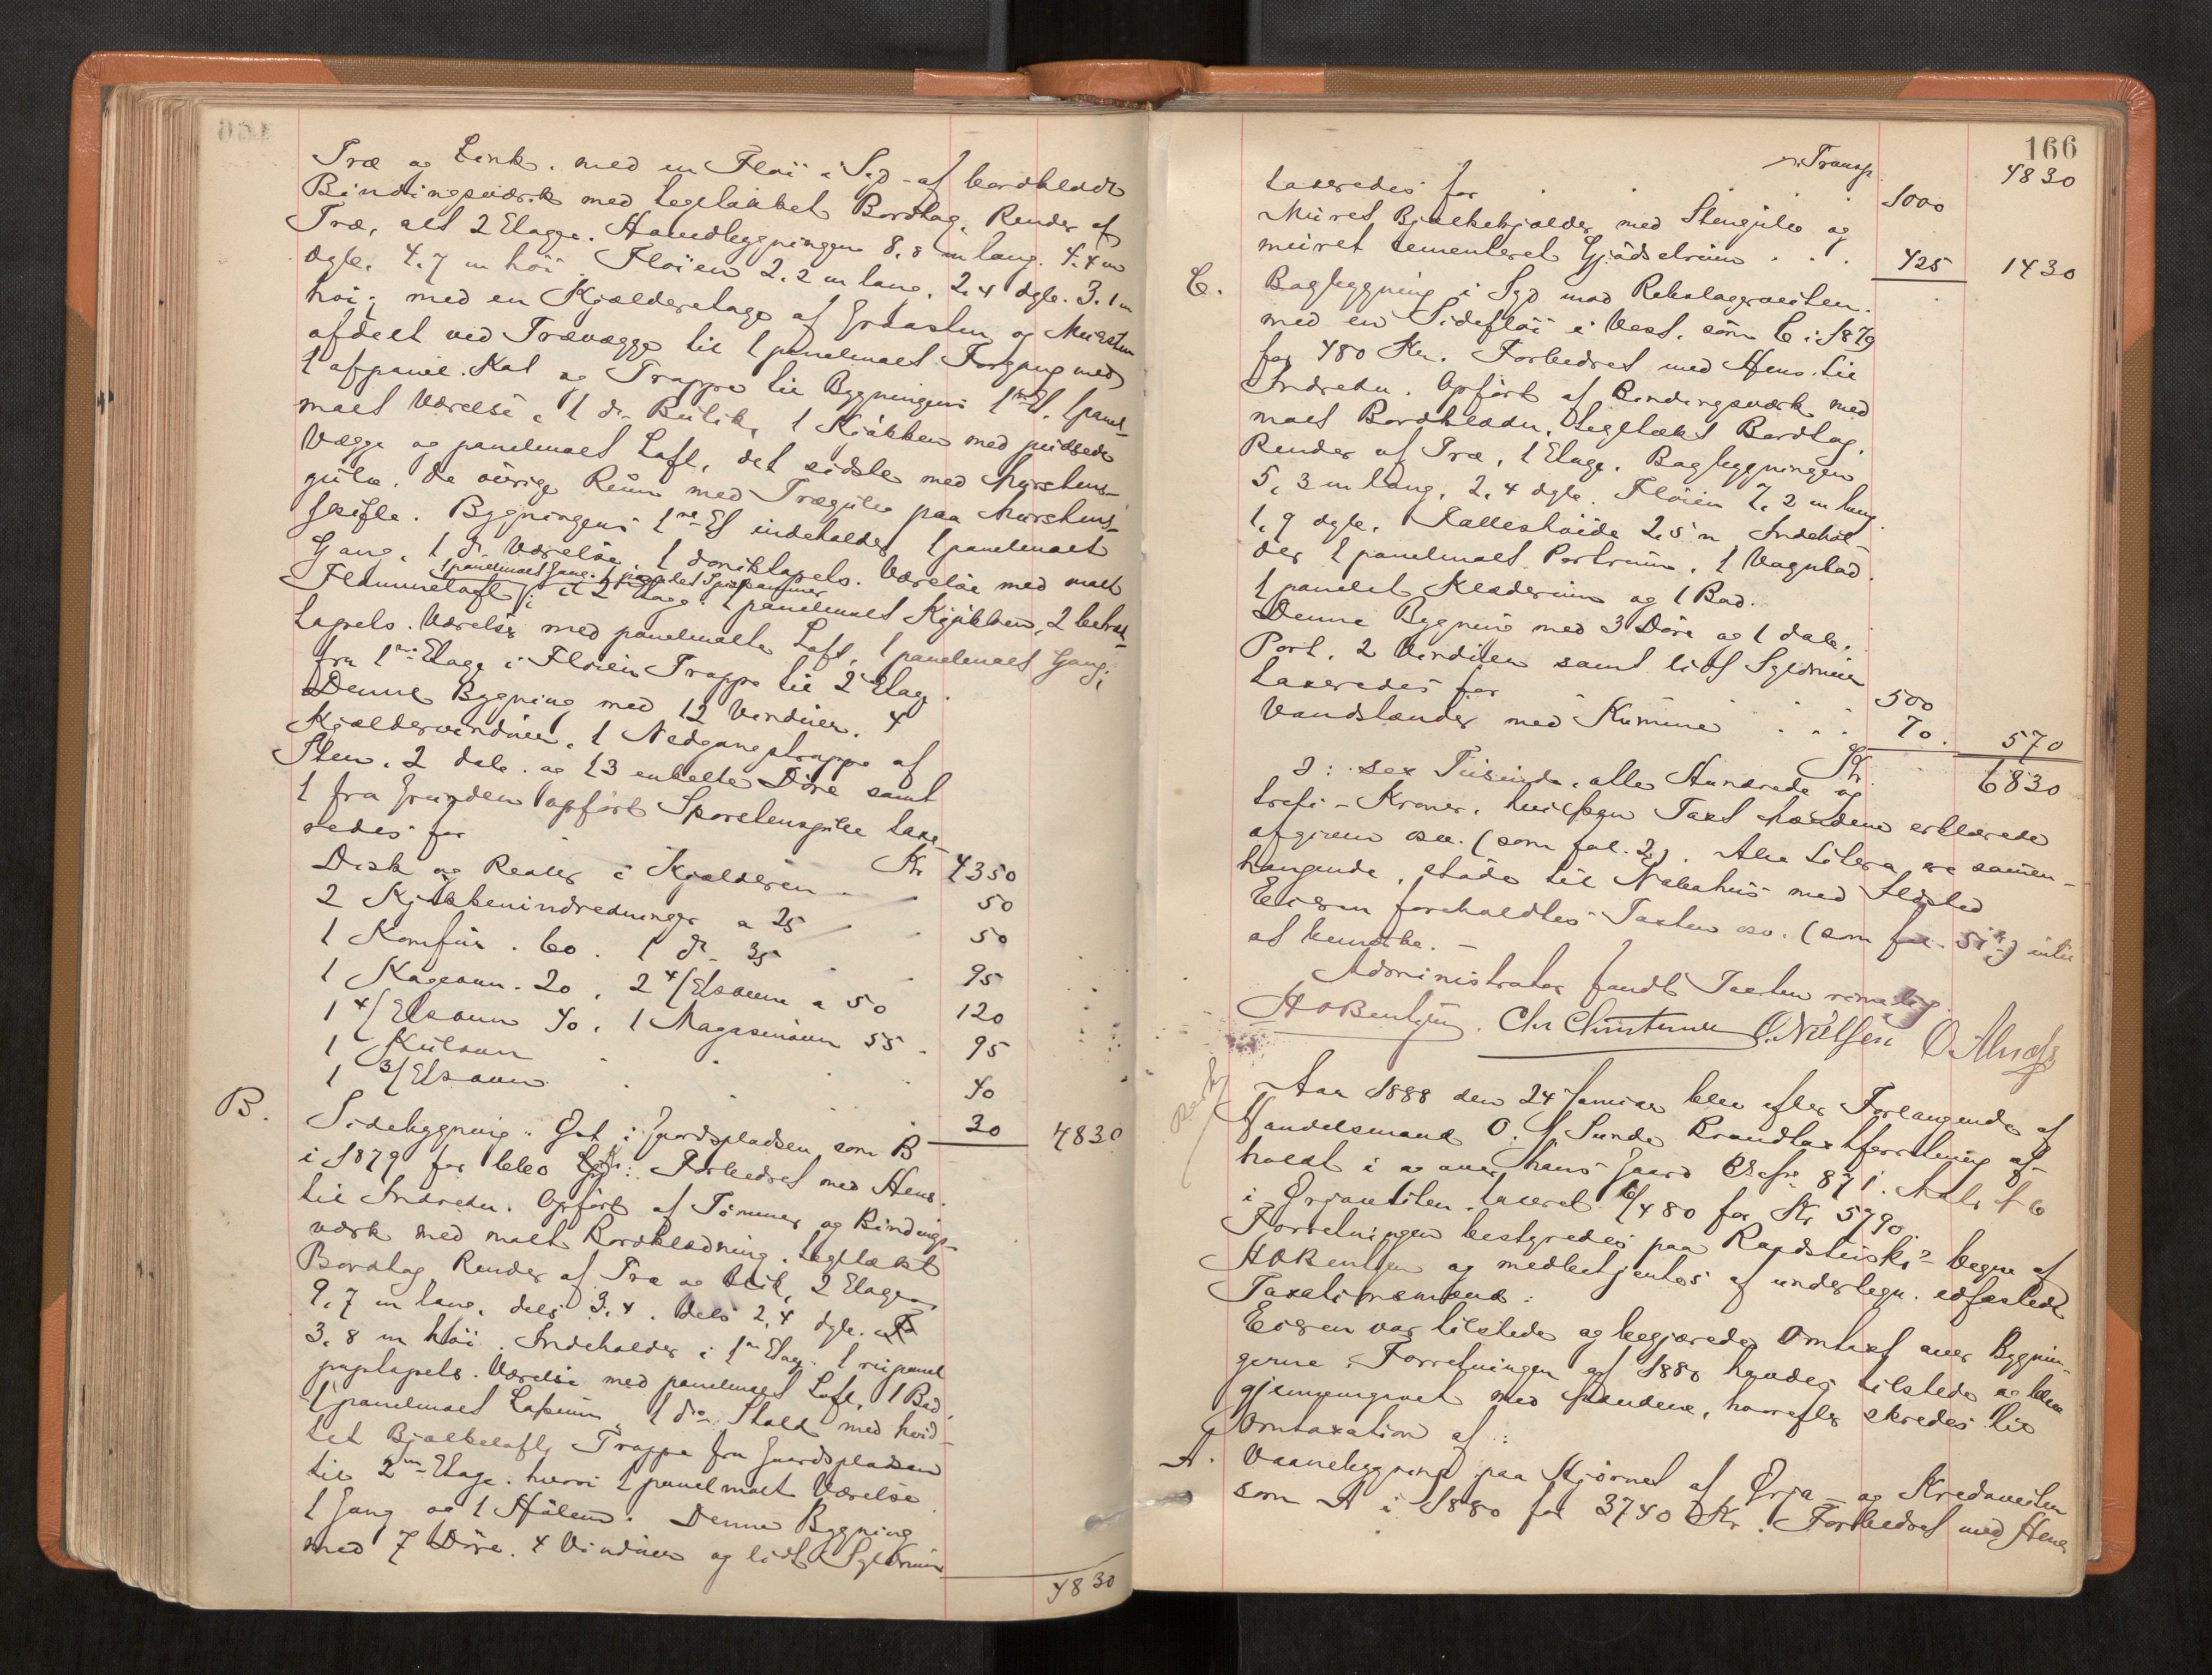 Træ og Zink. med en Fløi i Syd af bordklædt
Bindingsværk med tegllakket Bordtag, Render af
Træ, alt 2 Etager. Hovedbygningen 8,8 m lang. 4.4 m
dyb. 4.7 m høi. Fløien 2.2 m lang, 2,4 dyb. 3.1 m
høi; med en Kjælderetage af Graasten og Mursten
afdelt ved Trævægge til 1 panelmalt Forgang med
1 afpanel. Kot og Trappe til Bygningens 1ste Et. 1 panel-
malt Værelse, 1 do Butik, 1 Kjøkken med pudsede
Vægge og panelmalt Loft, det sidste med Murstens-
gulv. De øvrige Rum med Trægulv paa Murstens-
Bygningens 1ste Et indeholder 1 panelmalt
Gang, 1 do Værelse, 1 Værelse med malt
1 panelmalt Gang. 1 panelet Spiskammer
i 2 Etage: 1 panelmalt Kjøkken, 2 betræk-
tapets. Værelser med panelmalte Loft, 1 panelmalt Gang;
fra 1ste Etage i Fløien Trappe til 2 Etage.
Denne Bygning med 12 Vinduer. 4
Kjældervinduer, 1 Nedgangstrappe af
Sten. 2 dob. og 13 enkelte Døre samt
1 fra Grunden opført Skorstenspibe taxe-
redes for Kr 4350
Disk og Reoler i Kjælderen 50
2 Kjøkkenindredninger a 25 50
1 Komfur. 60. 1 do 35 95
1 Kogeovn. 20, 2 4/Etsovne a 50 120
1 4/Etsovn 40, 1 Magasinovn 55 95
1 Kulovn 40
1 3/Etsovn 30 4830
B. Sidebygning i Øst i Gaardspladsen som B
i 1879 for Forbedret med Hens.
til Indredn. Opført af Tømmer og Bindings-
værk med malt Bordklædning. teglækt
Bordtag Render af Træ og Blik, 2 Etager
9.7 m lang, dels 3.4. dels 2,4 dyb.
3.8 m høi. Indeholder i 1ste Etag. 1
papirtapets. Værelse med panelmalt Loft, 1 Bod,
1 panelmalt, 1 do Stald med hvid-
tet Bjælkeloft, Trappe fra Gaardspladsen
til 2den Etage. hvori 1 panelmalt Værelse
1 Gang og 1 Denne Bygning
med 7 Døre. 4 Vinduer og lidt Syldmur
4830
166
Transp. 4830
taxeredes for 1000
Muret Bjælkekjælder med Stengulv og
muret cementeret Gjødselrum 425 1430
C. Bagbygning i Syd mod
med en Sidefløi i Vest, som C i 1879
for 480 Kr. Forbedret med Hens. til
Indredn. Opført af Bindingsværk med
malt Bordklædn. teglækt Bordtag,
Render af Træ, 1 Etage. Bagbygningen
5,3 m lang, 2.4 dyb. Fløien 7,2 m lang.
1.9 dyb. Fælleshøide 2,5 m Indehol-
der 1 panelmalt Portrum, 1 Vognbod.
1 panelet Klæderum og 1 Bod.
Denne Bygning med 3 Døre og 1 dob.
Port, 2 Vinduer samt lidt Syldmur
taxeredes for 500
Vandstander med Kumme 70. 570
Kr. 6830
ɔ: sex Tusinde, otte Hundrede og
tredi - Kroner, hvilken Taxt Mændene erklærede
afgiven osv. (som fol. 2). Alle Litera ere sammen-
hængende, støde til Nabohus med Ildsted
Eieren foreholdtes Taxten osv. (som fol. 51) intet
at bemærke. -
Administrator fandt Taxten rimelig.
H O Bentzen. Chr Christensen O. Nielsen O. Alnæss
Aar 1888 den 24 Januar blev efter Forlangende af
Handelsmand O. Sunde Brandtaxtforretning af-
holdt i og over hans Gaard 871.
i Ørjaveiten. taxeret 6/4 80 for Kr 5790.
Forretningen bestyredes paa Raadstueskr.s Vegne af
H O Bentzen og medbetjentes af undertegn. edfæstede
Taxationsmænd:
Eieren var tilstede og begjærede Omtaxt over Bygnin-
gerne. Forretningen af 1880 havdes tilstede og blev
gjennemgaaet med Mændene, hvorefter skredes til
Omtaxation af:
A. Vaanebygning paa Hjørnet af Ørja- og Kredoveiten
som A i 1880 for 3740 Kr. Forbedret med Hens